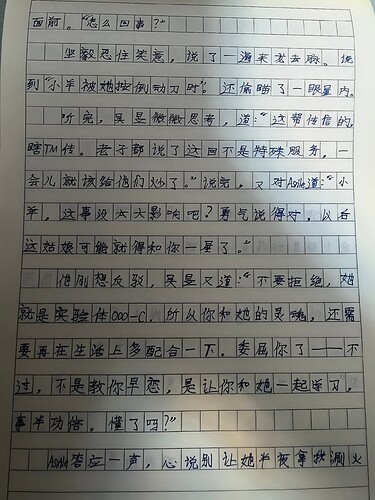 面前。"怎么回事?"
坐教忍住笑意,说了一遍来龙去脉。说
到"小羊被她按倒动刀时",还偷瞄了一眼星内。
听完,吴昱微微思考,道:"这帮传信的,
瞎TM传。老子都说了这回不是特殊服务,一
会儿就该给他们炒了。"说完,又对Asha道:"小
羊,这事没太大影响吧?勇气说得对,以后
这姑娘可能就得和你一屋了。"
他刚想反驳,吴昱又道:"不要拒绝,她
就是实验体000-C,所以你和她的灵魂,还需
要再在生活上多配合一下。委屈你了——不
过,不是教你早恋,是让你和她一起学习,
事半功倍。懂了吗?"
答应一声,心说别让她半夜拿我涮火